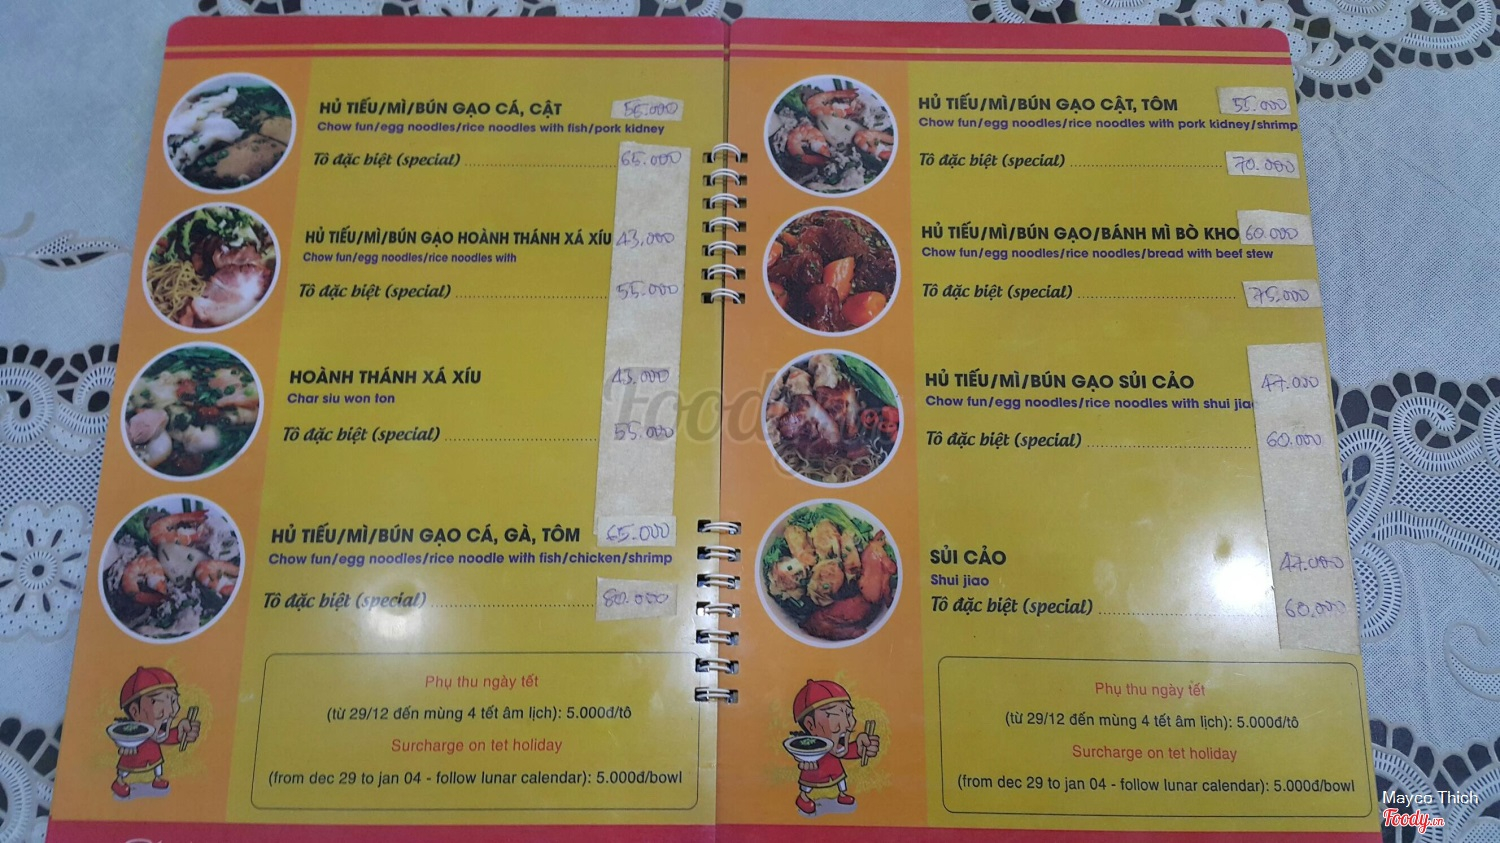 HỦ TIẾU/MÌ/BÚN GẠO CÁ, CẬT 55.000
Chow fun/egg noodles/rice noodles with fish/pork kidney
Tô đặc biệt (special) 65.000
HỦ TIẾU/MÌ/BÚN GẠO HOÀNH THÁNH XÁ XÍU 43.000
Chow fun/egg noodles/rice noodles with
Tô đặc biệt (special) 55.000
HOÀNH THÁNH XÁ XÍU 43.000
Char siu won ton
Tô đặc biệt (special) 55.000
HỦ TIẾU/MÌ/BÚN GẠO CÁ, GÀ, TÔM 65.000
Chow fun/egg noodles/rice noodle with fish/chicken/shrimp
Tô đặc biệt (special) 80.000
Phụ thu ngày tết
(từ 29/12 đến mùng 4 tết âm lịch): 5.000đ/tô
Surcharge on tet holiday
(from dec 29 to jan 04 - follow lunar calendar): 5.000đ/bowl
HỦ TIẾU/MÌ/BÚN GẠO CẬT, TÔM 55.000
Chow fun/egg noodles/rice noodles with pork kidney/shrimp
Tô đặc biệt (special) 70.000
HỦ TIẾU/MÌ/BÚN GẠO/BÁNH MÌ BÒ KHO 60.000
Chow fun/egg noodles/rice noodles/bread with beef stew
Tô đặc biệt (special) 75.000
HỦ TIẾU/MÌ/BÚN GẠO SỦI CẢO 47.000
Chow fun/egg noodles/rice noodles with shui jiao
Tô đặc biệt (special) 60.000
SỦI CẢO 47.000
Shui jiao
Tô đặc biệt (special) 60.000
Phụ thu ngày tết
(từ 29/12 đến mùng 4 tết âm lịch): 5.000đ/tô
Surcharge on tet holiday
(from dec 29 to jan 04 - follow lunar calendar): 5.000đ/bowl
Foody
Mayco Thich
Foody.vn